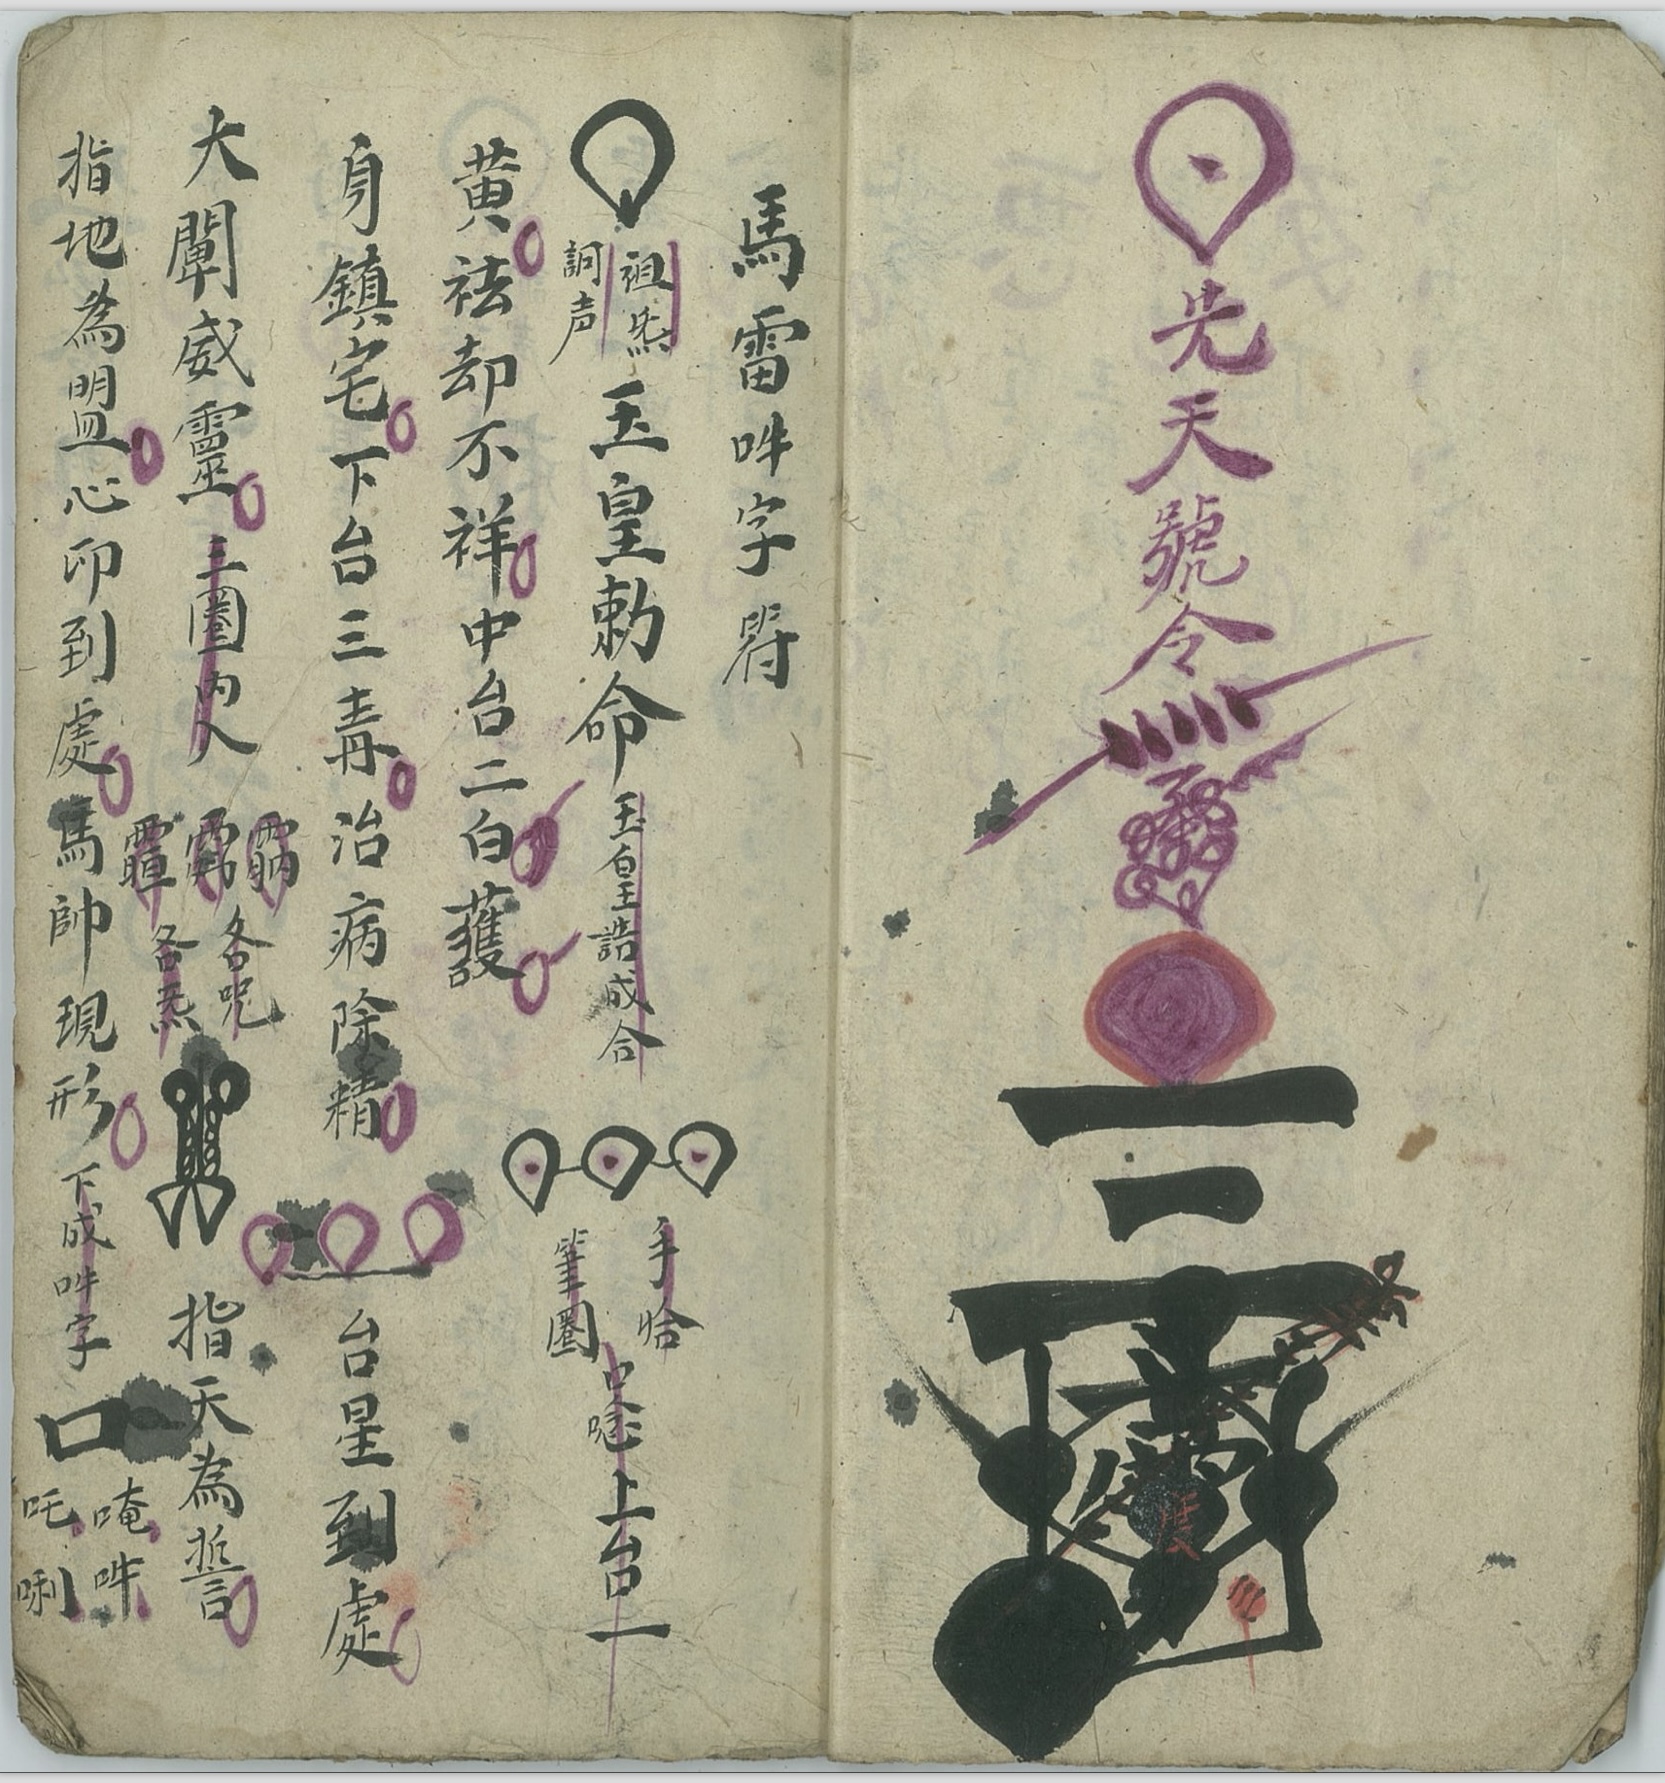 先天號令
馬雷吽字符
祖炁
詞声
玉皁勅命
玉皇誥成合
手恰
筆圈
口唸
上台一
黄祛却不祥中台二白護
身鎮宅下台三毒治病除精
台星到處
大闡威靈
三圈內人
各呪
各炁
指天為誓
指地為盟心印到處馬帥現形
下成吽字
口
唵吽
吒唎